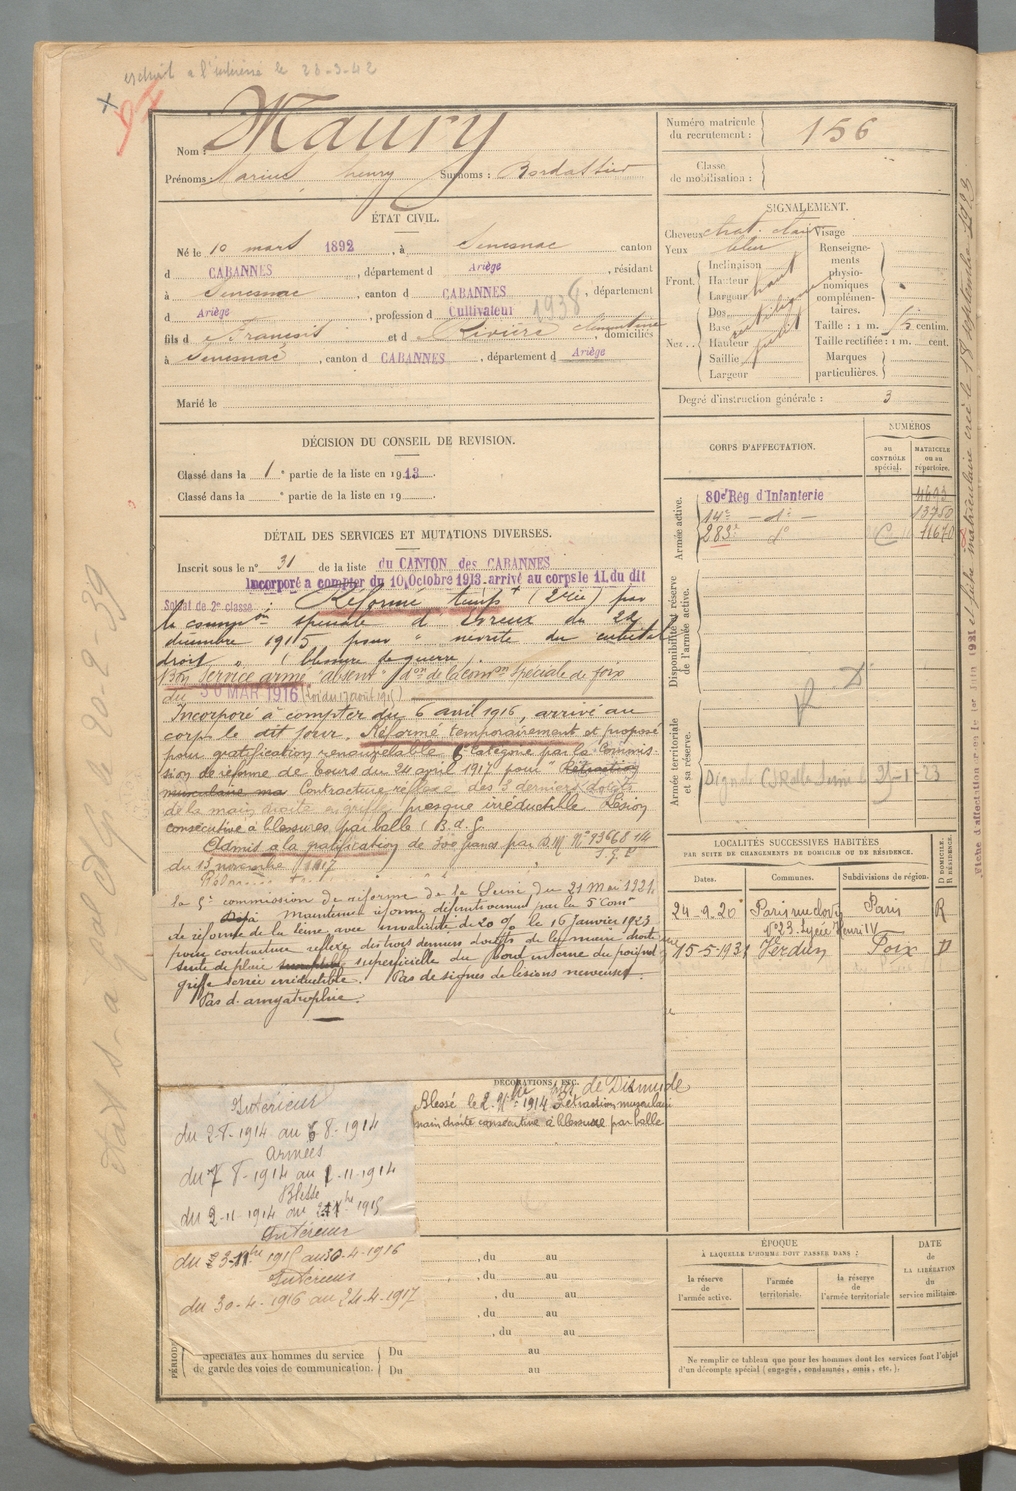 extrait a l'intéressé le 23-3-42
Nom : Maury
Prénoms : Marius, henry Surnoms : Bordassier
Numéro matricule du recrutement : 156
Classe de mobilisation :
ÉTAT CIVIL.
Né le 10 mars 1892, à Senesnac canton
d CABANNES, département d Ariège, résidant
à Senesnac, canton d CABANNES, département
d Ariège, profession de Cultivateur 1938
fils d François et d Rivière Clémentine, domiciliés
à Senesnac, canton d CABANNES, département d Ariège
Marié le
SIGNALEMENT.
Cheveux chat. clair Visage
Yeux bleu
Front. Inclinaison
Hauteur haut
Largeur
Nez. Dos
Base rectiligne
Hauteur petit
Saillie
Largeur
Renseignements physionomiques complémentaires.
Taille : 1 m. centim.
Taille rectifiée : 1 m. cent.
Marques particulières.
Degré d'instruction générale : 3
DÉCISION DU CONSEIL DE REVISION.
Classé dans la 1e partie de la liste en 1913.
Classé dans la e partie de la liste en 19
CORPS D'AFFECTATION.
NUMÉROS
au CONTRÔLE spécial.
MATRICULE ou au répertoire.
Armée active.
80e Rég d'Infanterie
14e - do - 13750
283e do C 11670
Disponibilité et réserve de l'armée active.
Armée territoriale et sa réserve.
25-1-23
DÉTAIL DES SERVICES ET MUTATIONS DIVERSES.
Inscrit sous le no 31 de la liste du CANTON des CABANNES
Incorporé a compter du 10 Octobre 1913 arrivé au corps le 11 du dit
Soldat de 2e classe : Réformé temps (2e cie) par
la common spéciale d'Evreux du 22
décembre 1915 pour " névrite du cubital
droit " (blessure de guerre
Bon service armé "absent" don de la common Spéciale de foix
du 30 MAR 1916 (Loi du 17 août 1915)
Incorporé à compter du 6 avril 1916, arrivé au
corps le dit jour. Réformé temporairement et proposé
pour gratification renouvelable 6e Catégorie par la Commis-
sion de réforme de Tours du 24 avril 1917 pour " Rétraction
musculaire ma Contracture réflexe des 3 derniers doigts
de la main droite en griffe presque irréductible. Lésion
consécutive à blessures par balle (B. d. G.
Admis a la gratification de 300 francs par D.M. No 93668
du 13 novembre 1917
la 5e commission de réforme de la Seine du 21 Mai 1921
Maintenu réformé définitivement par la 5e Comon
de réforme de la Seine avec invalidité de 20 % le 16 Janvier 1923
pour contracture reflexe des trois derniers doigts de la main droite
suite de plaie superficielle du bord interne du poignet
griffe serrée irréductible. Pas de signes de lésions nerveuses.
Pas d'amyotrophie.
LOCALITÉS SUCCESSIVES HABITÉES
PAR SUITE DE CHANGEMENTS DE DOMICILE OU DE RÉSIDENCE.
Dates. Communes. Subdivisions de région. D DOMICILE. R RÉSIDENCE.
24-9-20 Paris rue Clovis Paris R
No 23 Lycée Henri IV
15-5-1931 Verdun Foix D
DÉCORATIONS, ETC.
de Dixmude
Blessé le 2 9bre 1914 Rétraction musculaire
main droite consécutive à blessure par balle
Intérieur
du 2-8-1914 au 6 8-1914
Armées
du 7 8-1914 au 1-11-1914
Blessé
du 2-11-1914 au 1915
Intérieur
du 1915 au 30-4-1916
Intérieur
du 30-4-1916 au 24-4-1917
, du au
, du au
, du au
, du au
, du au
PÉRIODES
Spéciales aux hommes du service de garde des voies de communication.
Du au
Du au
ÉPOQUE
À LAQUELLE L'HOMME DOIT PASSER DANS :
la réserve de l'armée active.
l'armée territoriale.
la réserve de l'armée territoriale
DATE de LA LIBÉRATION du service militaire.
Ne remplir ce tableau que pour les hommes dont les services font l'objet
d'un décompte spécial (engagés, condamnés, omis, etc.).